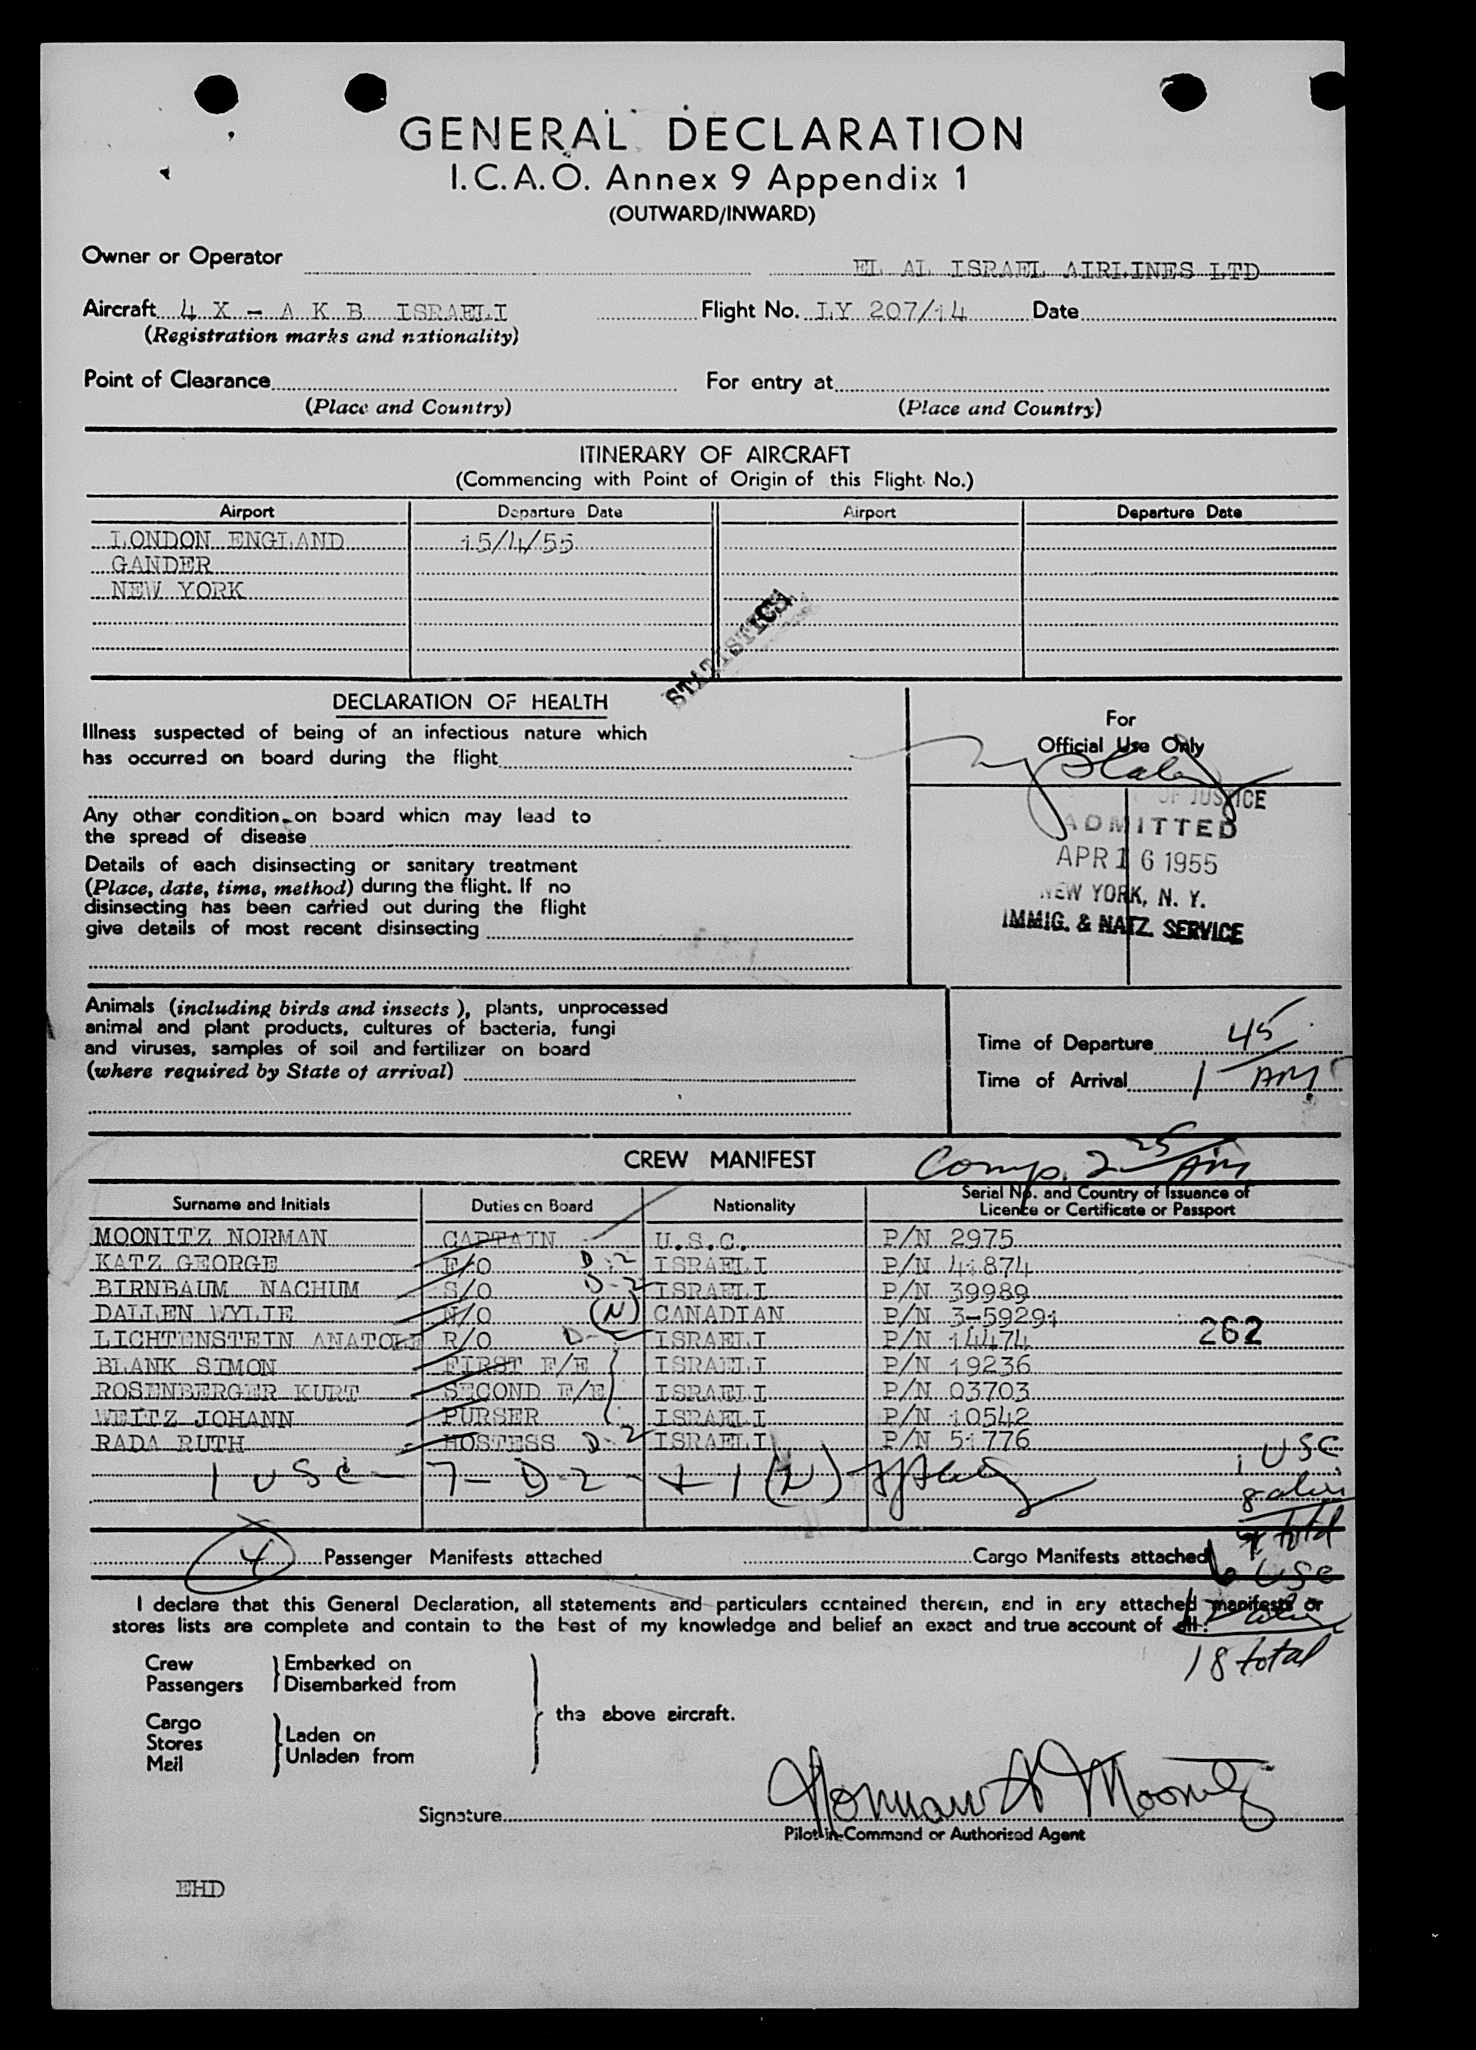 GENERAL DECLARATION
I.C.A.O. Annex 9 Appendix 1
(OUTWARD/INWARD)
Owner or Operator EL AL ISRAEL AIRLINES LTD
Aircraft 4 X - A K B ISRAELI Flight No. LY 207/14 Date
(Registration marks and nationality)
Point of Clearance For entry at
(Place and Country) (Place and Country)
ITINERARY OF AIRCRAFT
(Commencing with Point of Origin of this Flight No.)
Airport Departure Date Airport Departure Date
LONDON ENGLAND 15/4/55
GANDER
NEW YORK
STATISTICS
DECLARATION OF HEALTH
Illness suspected of being of an infectious nature which
has occurred on board during the flight
Any other condition on board which may lead to
the spread of disease
Details of each disinsecting or sanitary treatment
(Place, date, time, method) during the flight. If no
disinsecting has been carried out during the flight
give details of most recent disinsecting
For
Official Use Only
OF JUSTICE
ADMITTED
APR 16 1955
NEW YORK, N. Y.
IMMIG. & NATZ. SERVICE
Animals (including birds and insects), plants, unprocessed
animal and plant products, cultures of bacteria, fungi
and viruses, samples of soil and fertilizer on board
(where required by State of arrival)
Time of Departure
Time of Arrival 1 45 AM
CREW MANIFEST Comp. 2 25 AM
Surname and Initials Duties on Board Nationality Serial No. and Country of Issuance of
Licence or Certificate or Passport
MOONITZ NORMAN CAPTAIN U.S.C. P/N 2975
KATZ GEORGE F/O D-2 ISRAELI P/N 41874
BIRNBAUM NACHUM S/O D-2 ISRAELI P/N 39989
DALLEN WYLIE N/O (N) CANADIAN P/N 3-59291
LICHTENSTEIN ANATOLE R/O D- ISRAELI P/N 14474 262
BLANK SIMON FIRST F/E ISRAELI P/N 19236
ROSENBERGER KURT SECOND F/E ISRAELI P/N 03703
WEITZ JOHANN PURSER ISRAELI P/N 10542
RADA RUTH HOSTESS D-2 ISRAELI P/N 51776
1 USC - 7 - D-2 - + 1 (N) 1 USC
8 alien
9 total
4 Passenger Manifests attached Cargo Manifests attached
6 USC
12 alien
18 total
I declare that this General Declaration, all statements and particulars contained therein, and in any attached manifests or
stores lists are complete and contain to the best of my knowledge and belief an exact and true account of all:
Crew Embarked on
Passengers Disembarked from
the above aircraft.
Cargo
Stores Laden on
Mail Unladen from
Signature Norman A Moonitz
Pilot-in-Command or Authorised Agent
EHD